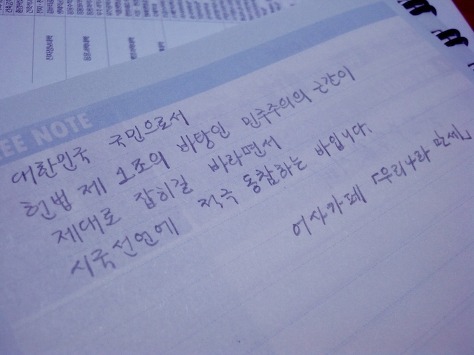 EE NOTE
대한민국 국민으로서
헌법 제 1조의 바탕인 민주주의의 근간이
제대로 잡히길 바라면서
시국선언에 적극 동참하는 바입니다.
여사카페 「우리나라 만세」